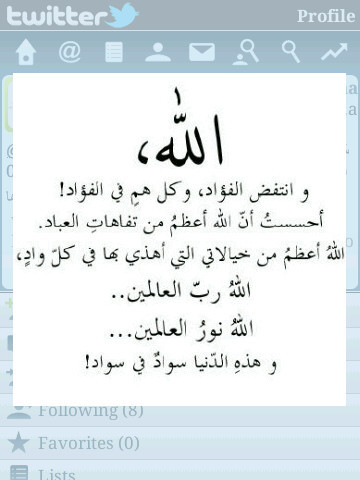 twitter
Profile
الله،
و انتفض الفؤاد، وكل همٍ في الفؤاد!
أحسستُ أنّ الله أعظمُ من تفاهاتِ العباد.
اللهُ أعظمُ من خيالاتي التي أهذي بها في كلّ وادٍ,
اللهُ ربّ العالمين..
اللهُ نورُ العالمين...
و هذهِ الدّنيا سوادٌ في سواد!
Following (8)
Favorites (0)
Lists